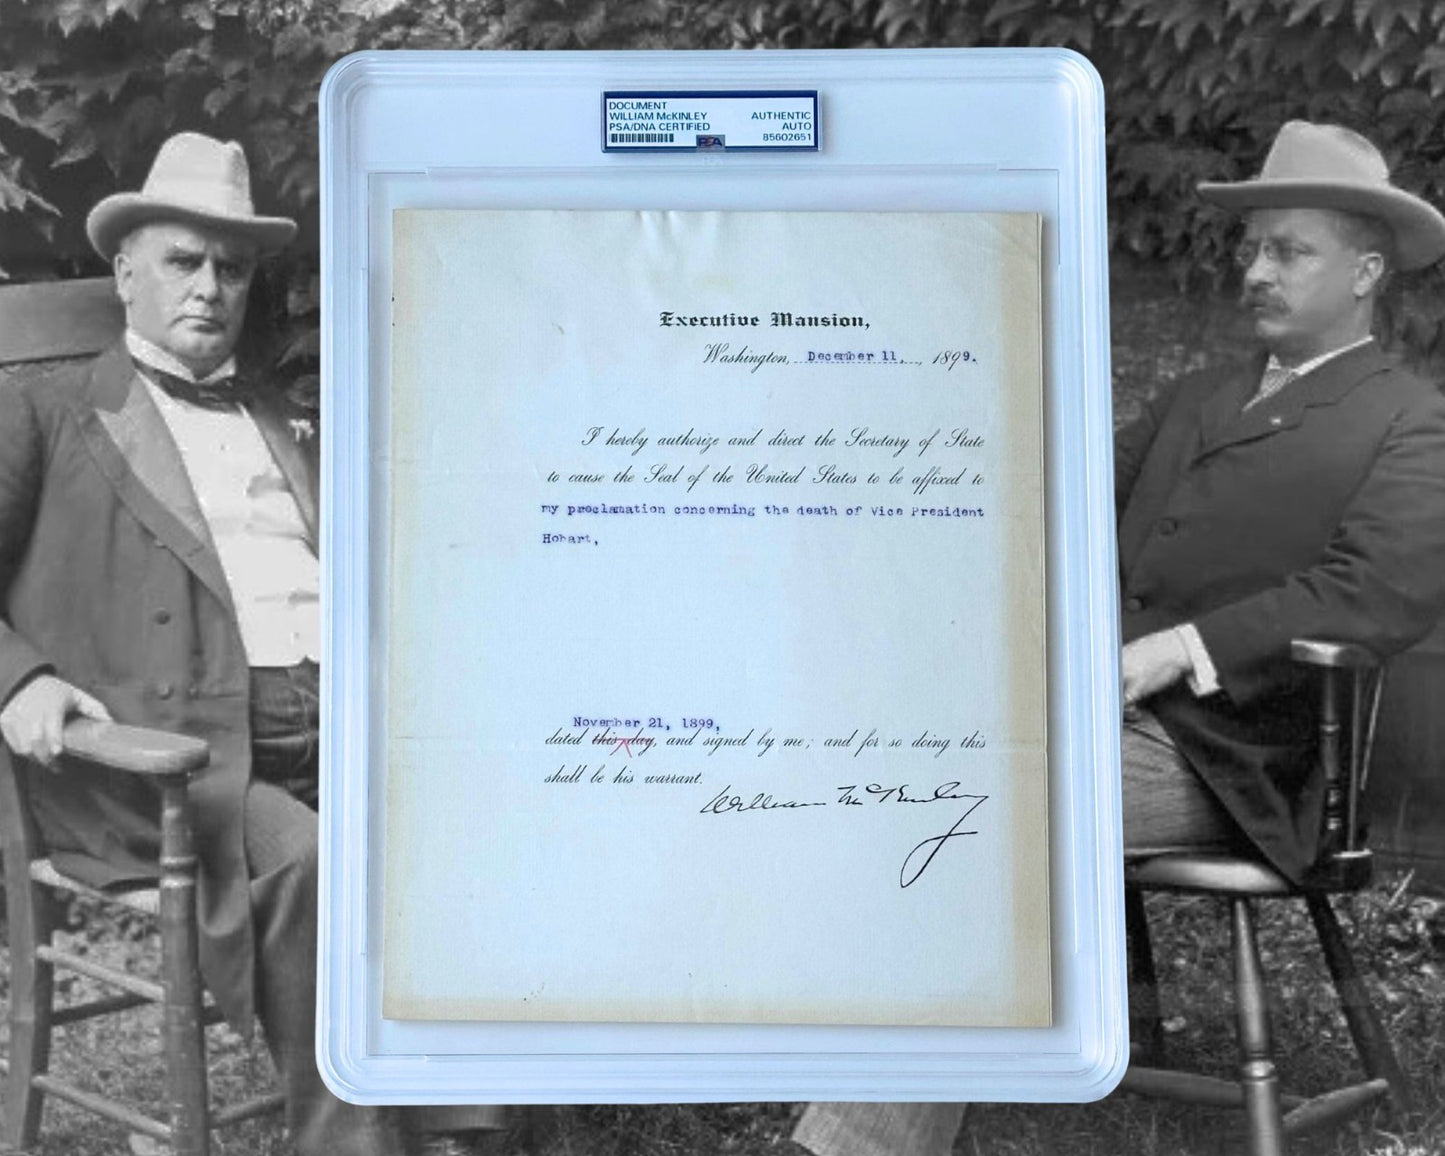 DOCUMENT
WILLIAM McKINLEY AUTHENTIC
PSA/DNA CERTIFIED AUTO
PSA 85602651
Executive Mansion,
Washington, December 11, 1899.
I hereby authorize and direct the Secretary of State
to cause the Seal of the United States to be affixed to
my proclamation concerning the death of Vice President
Hobart,
November 21, 1899,
dated this day, and signed by me; and for so doing this
shall be his warrant.
William McKinley